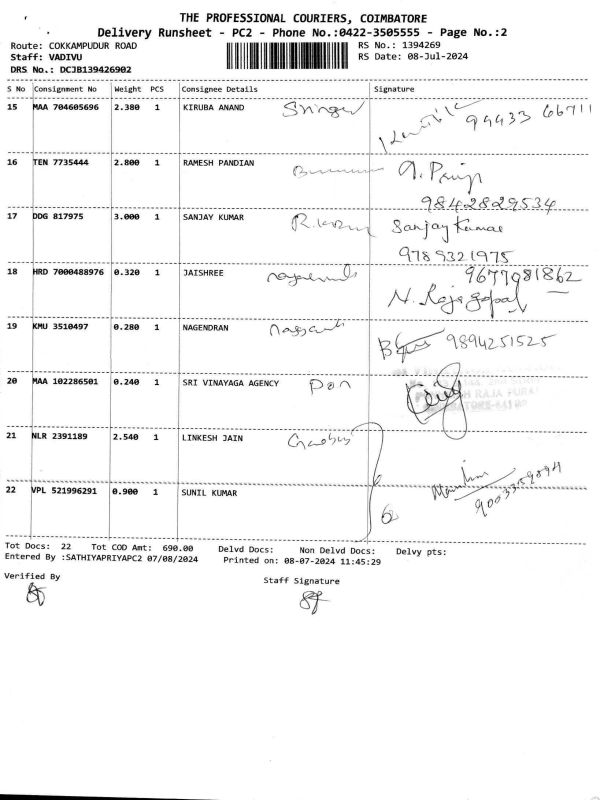 THE PROFESSIONAL COURIERS, COIMBATORE
Delivery Runsheet - PC2 - Phone No.:0422-3505555 - Page No.:2
Route: COKKAMPUDUR ROAD
RS No.: 1394269
Staff: VADIVU
RS Date: 08-Jul-2024
DRS No.: DCJB139426902
S No Consignment No Weight PCS Consignee Details Signature
15 MAA 704605696 2.380 1 KIRUBA ANAND
99433 66711
16 TEN 7735444 2.800 1 RAMESH PANDIAN
9842829534
17 DDG 817975 3.000 1 SANJAY KUMAR Sanjay Kumar
9789321975
18 HRD 7000488976 0.320 1 JAISHREE 9677981862
N. Rajagopal
19 KMU 3510497 0.280 1 NAGENDRAN 9894251525
20 MAA 102286501 0.240 1 SRI VINAYAGA AGENCY Pon
21 NLR 2391189 2.540 1 LINKESH JAIN
22 VPL 521996291 0.900 1 SUNIL KUMAR 9003359894
Tot Docs: 22 Tot COD Amt: 690.00 Delvd Docs: Non Delvd Docs: Delvy pts:
Entered By :SATHIYAPRIYAPC2 07/08/2024 Printed on: 08-07-2024 11:45:29
Verified By
Staff Signature